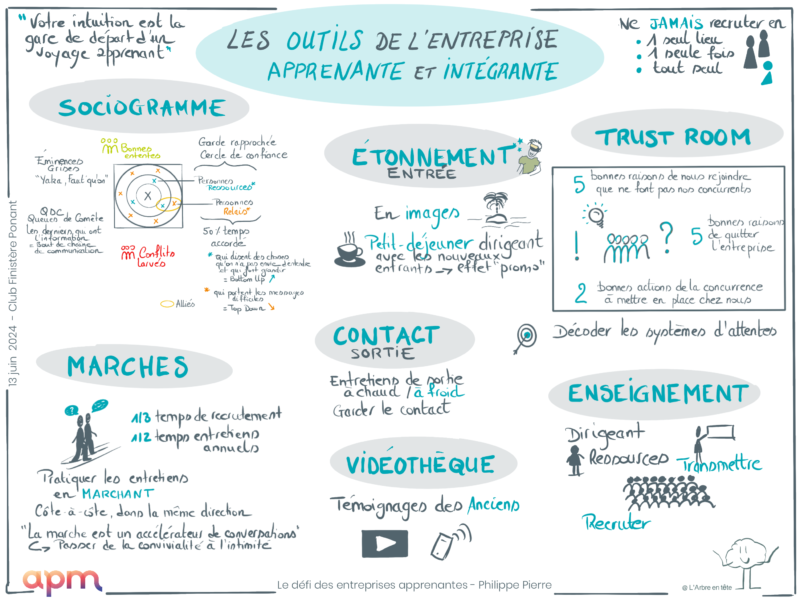 "Votre intuition est la
gare de départ d'un
voyage apprenant"
LES OUTILS DE L'ENTREPRISE
APPRENANTE ET INTÉGRANTE
Ne JAMAIS recruter en
• 1 seul lieu
• 1 seule fois
• tout seul
SOCIOGRAMME
Bonnes
ententes
Garde rapprochée
Cercle de confiance
Éminences
Grises
"Yaka, Faut qu'on"
X
Personnes
Ressources*
Personnes
Relais*
QDC
Queues de Comète
Les derniers qui ont
l'information
= Bout de chaîne
de communication
Conflits
larvés
50% temps
accordé
* qui disent des choses
qu'on n'a pas envie d'entendre
et qui font grandir
= Bottom Up
* qui portent les messages
difficiles
= Top Down
Alliés
ÉTONNEMENT
ENTRÉE
En images
Petit-déjeuner dirigeant
avec les nouveaux
entrants → effet "promo"
TRUST ROOM
5 bonnes raisons de nous rejoindre
que ne font pas nos concurrents
! ? 5 bonnes raisons
de quitter
l'entreprise
2 bonnes actions de la concurrence
à mettre en place chez nous
Décoder les systèmes d'attentes
MARCHES
?
1/3 temps de recrutement
1/2 temps entretiens
annuels
Pratiquer les entretiens
en MARCHANT
Côte-à-côte, dans la même direction
"La marche est un accélérateur de conversations"
↳ Passer de la convivialité à l'intimité
CONTACT
SORTIE
Entretiens de sortie
à chaud / à froid
Garder le contact
VIDÉOTHÈQUE
Témoignages des Anciens
ENSEIGNEMENT
Dirigeant
Ressources
Transmettre
Recruter
13 juin 2024 - Club Finistère Ponant
apm
Le défi des entreprises apprenantes - Philippe Pierre
@ L'Arbre en tête